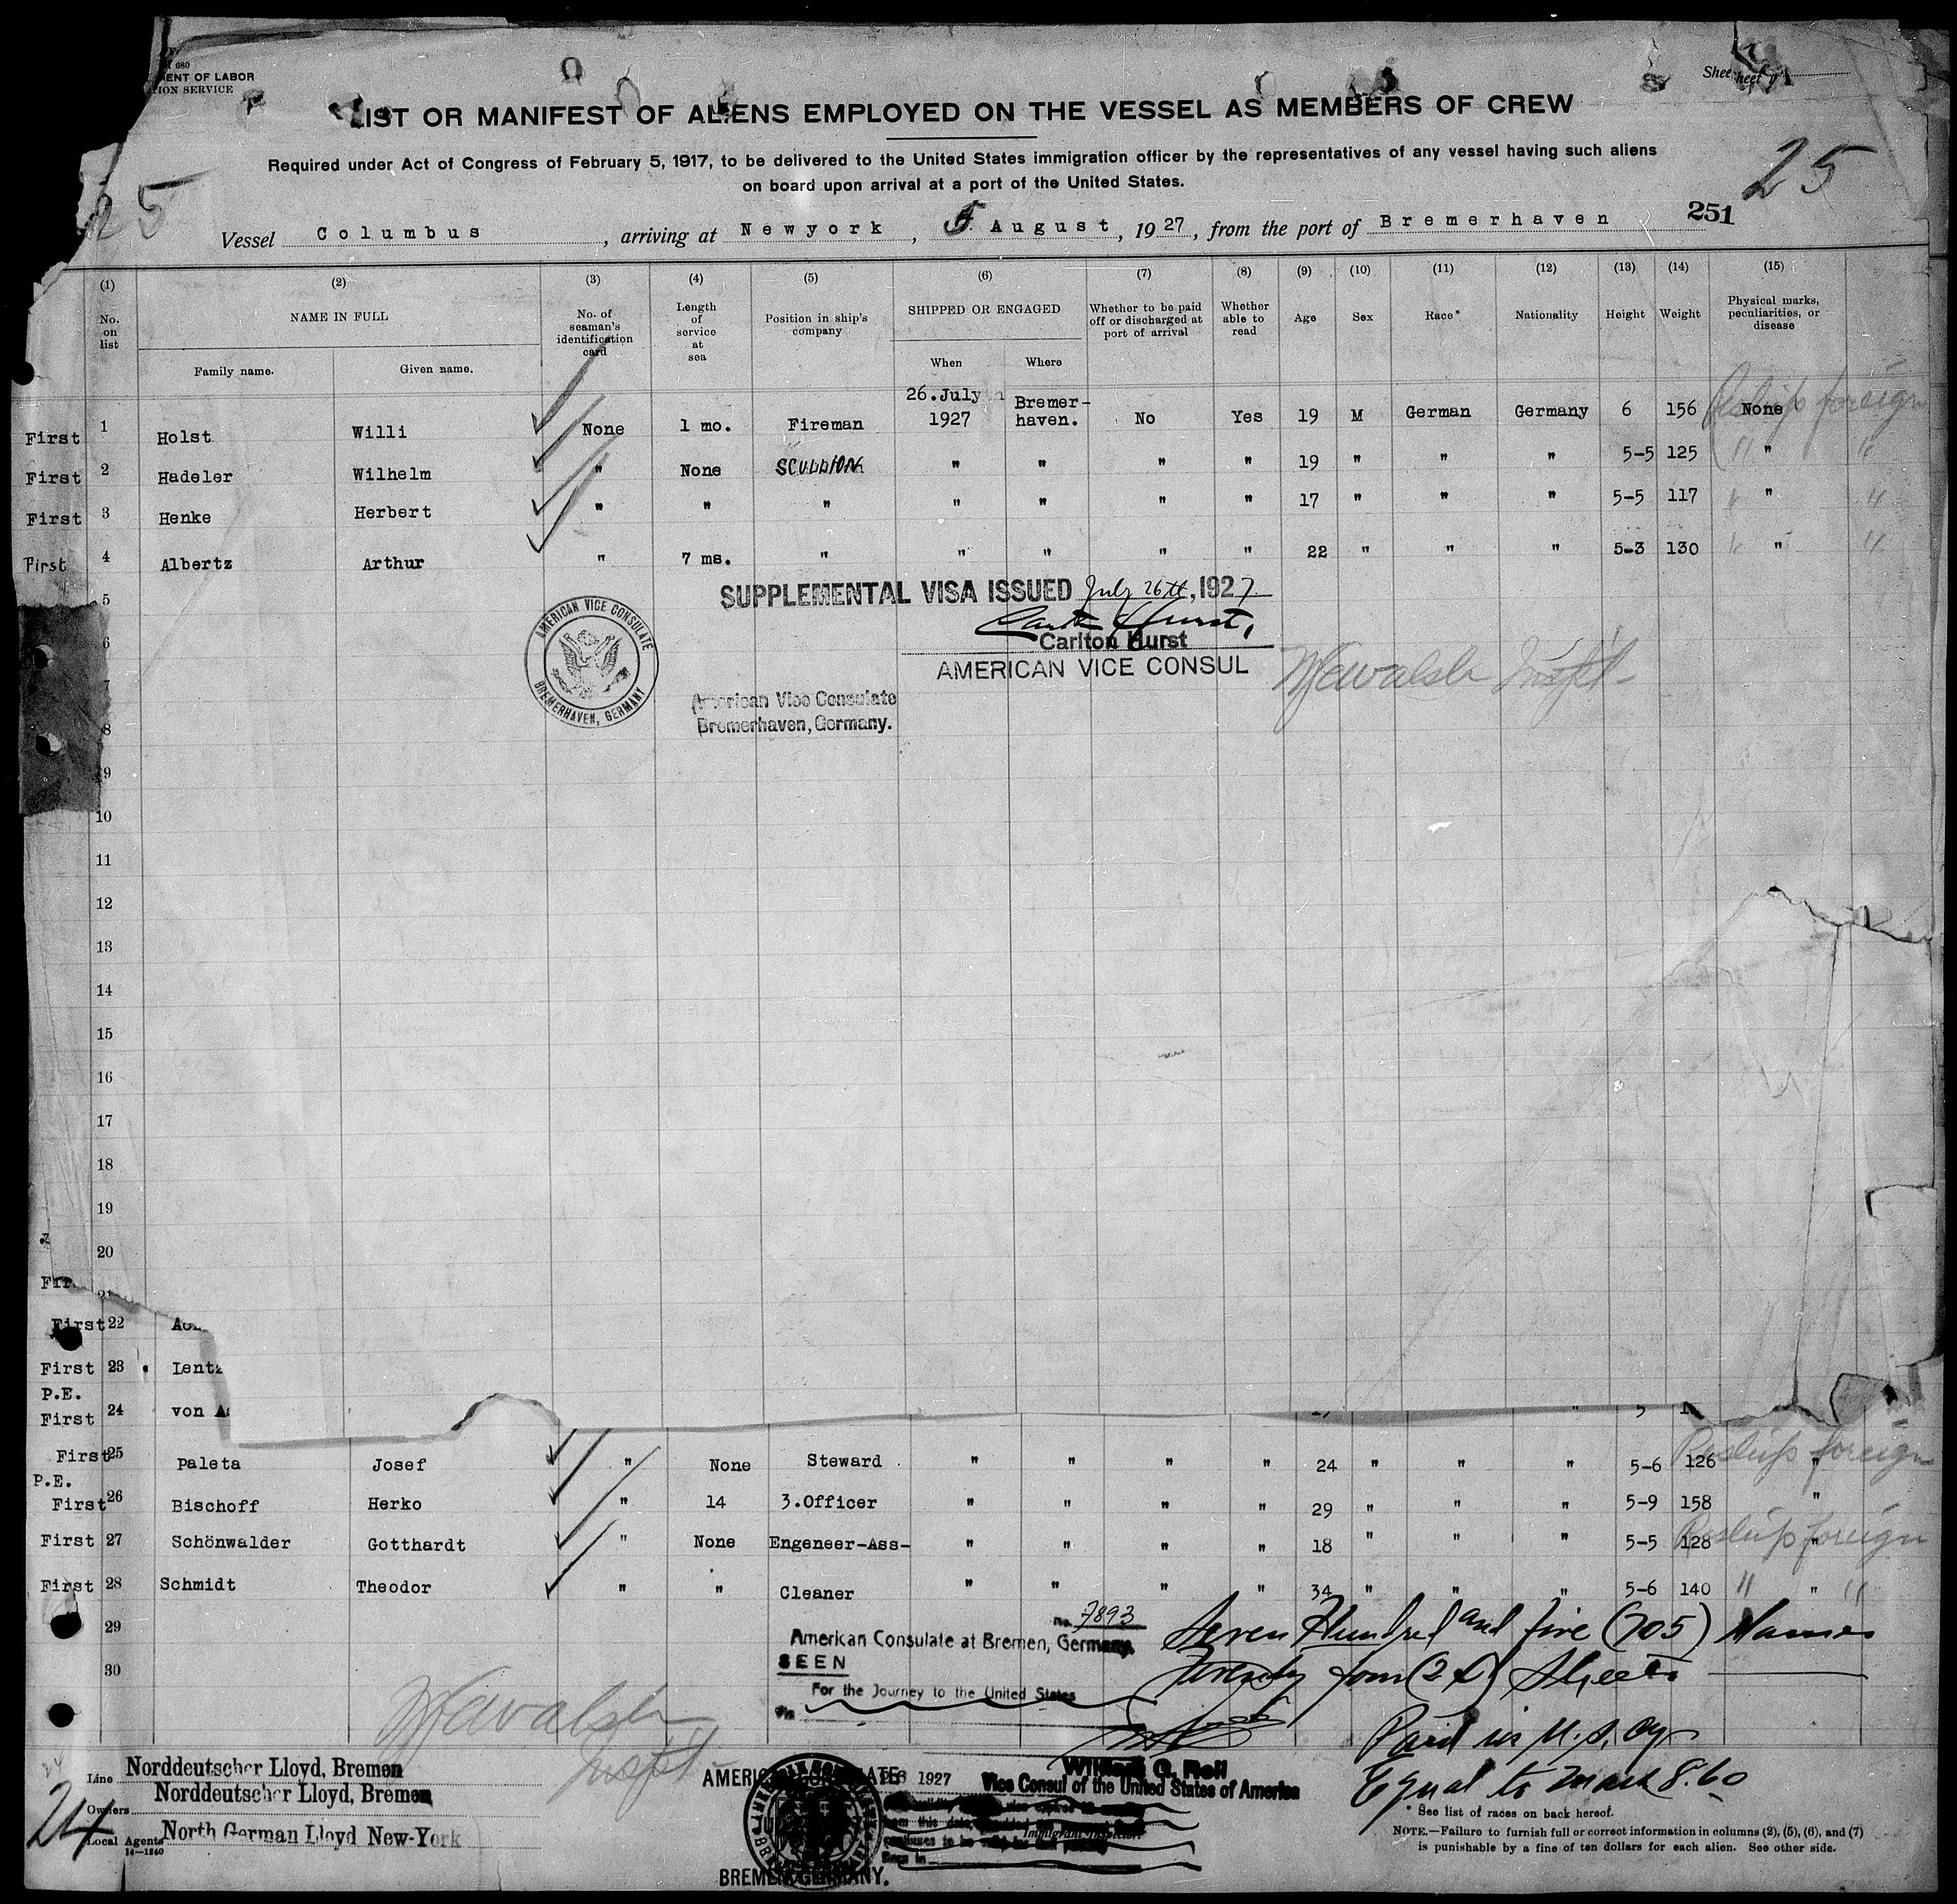 680
ENT OF LABOR
TION SERVICE
LIST OR MANIFEST OF ALIENS EMPLOYED ON THE VESSEL AS MEMBERS OF CREW
Required under Act of Congress of February 5, 1917, to be delivered to the United States immigration officer by the representatives of any vessel having such aliens
on board upon arrival at a port of the United States.
25
25
251
Vessel Columbus, arriving at Newyork, 5 August, 1927, from the port of Bremerhaven
(1) (2) (3) (4) (5) (6) (7) (8) (9) (10) (11) (12) (13) (14) (15)
No. on list
NAME IN FULL
Family name. Given name.
No. of seaman's identification card
Length of service at sea
Position in ship's company
SHIPPED OR ENGAGED
When Where
Whether to be paid off or discharged at port of arrival
Whether able to read
Age Sex Race* Nationality Height Weight
Physical marks, peculiarities, or disease
First 1 Holst Willi None 1 mo. Fireman 26.July 1927 Bremer-haven. No Yes 19 M German Germany 6 156 None Reship foreign
First 2 Hadeler Wilhelm " None SCULLION " " " " 19 " " " 5-5 125 " " "
First 3 Henke Herbert " " " " " " " 17 " " " 5-5 117 " " "
First 4 Albertz Arthur " 7 ms. " " " " " 22 " " " 5-3 130 " " "
5
SUPPLEMENTAL VISA ISSUED July 26th, 1927.
Carlton Hurst
AMERICAN VICE CONSUL
AMERICAN VICE CONSULATE
BREMERHAVEN, GERMANY
American Vice Consulate
Bremerhaven, Germany.
6
8
9
10
11
12
13
14
15
16
17
18
19
20
21
First 22
First 23 Lentz
P.E.
First 24 von
First 25 Paleta Josef " None Steward " " " " 24 " " " 5-6 126 " Reship foreign
P.E.
First 26 Bischoff Herko " 14 3.Officer " " " " 29 " " " 5-9 158 "
First 27 Schönwalder Gotthardt " None Engeneer-Ass- " " " " 18 " " " 5-5 128 " Reship foreign
First 28 Schmidt Theodor " " Cleaner " " " " 34 " " " 5-6 140 " " "
29
30
no. 7893
American Consulate at Bremen, Germany.
SEEN
For the Journey to the United States
Seven Hundred and five (705) Names
Twenty four (24) Sheets
Paid in U.S. Cy
Equal to Mark 8.60
Line Norddeutscher Lloyd, Bremen
Owners Norddeutscher Lloyd, Bremen
Local Agents North German Lloyd New-York
14—1240
24
1927
Vice Consul of the United States of America
Immigrant Inspector.
BREMEN GERMANY.
* See list of races on back hereof.
NOTE.—Failure to furnish full or correct information in columns (2), (5), (6), and (7)
is punishable by a fine of ten dollars for each alien. See other side.